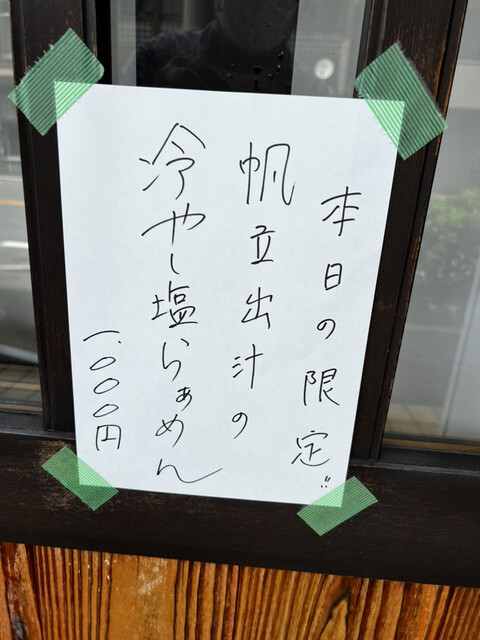 本日の限定‼
帆立出汁の
冷やし塩らぁめん
一、〇〇〇円